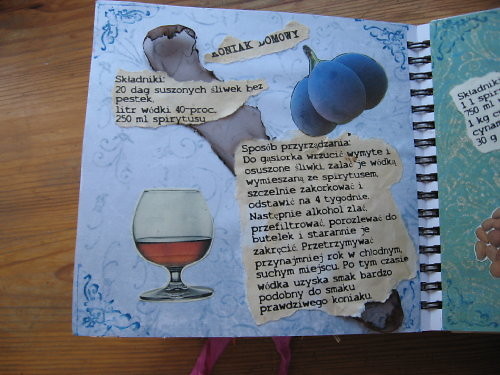 KONIAK DOMOWY
Składniki:
20 dag suszonych śliwek bez
pestek
litr wódki 40-proc.
250 ml spirytusu
Sposób przyrządzania:
Do gąsiorka wrzucić wymyte i
osuszone śliwki, zalać je wódką
wymieszaną ze spirytusem,
szczelnie zakorkować i
odstawić na 4 tygodnie.
Następnie alkohol zlać,
przefiltrować, porozlewać do
butelek i starannie je
zakręcić. Przetrzymywać
przynajmniej rok w chłodnym,
suchym miejscu. Po tym czasie
wódka uzyska smak bardzo
podobny do smaku
prawdziwego koniaku.
Składniki
1 l spiry
750 ml
1 kg c
cynam
30 g